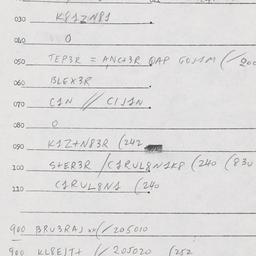 030 K81ZN81
040 0
050 TEP3R = ANCH3R QAP GOJ1M (/200
060 BLEX3R
070 C1N // C1J1N
080 0
090 K1Z+N83R (242
100 S+ER3R /C1RUL8N1K8 (240 (830
110 C1RUL8N1 (240
900 BRU3RAJ (/205010
900 KL8EJT+ // 205020 (252